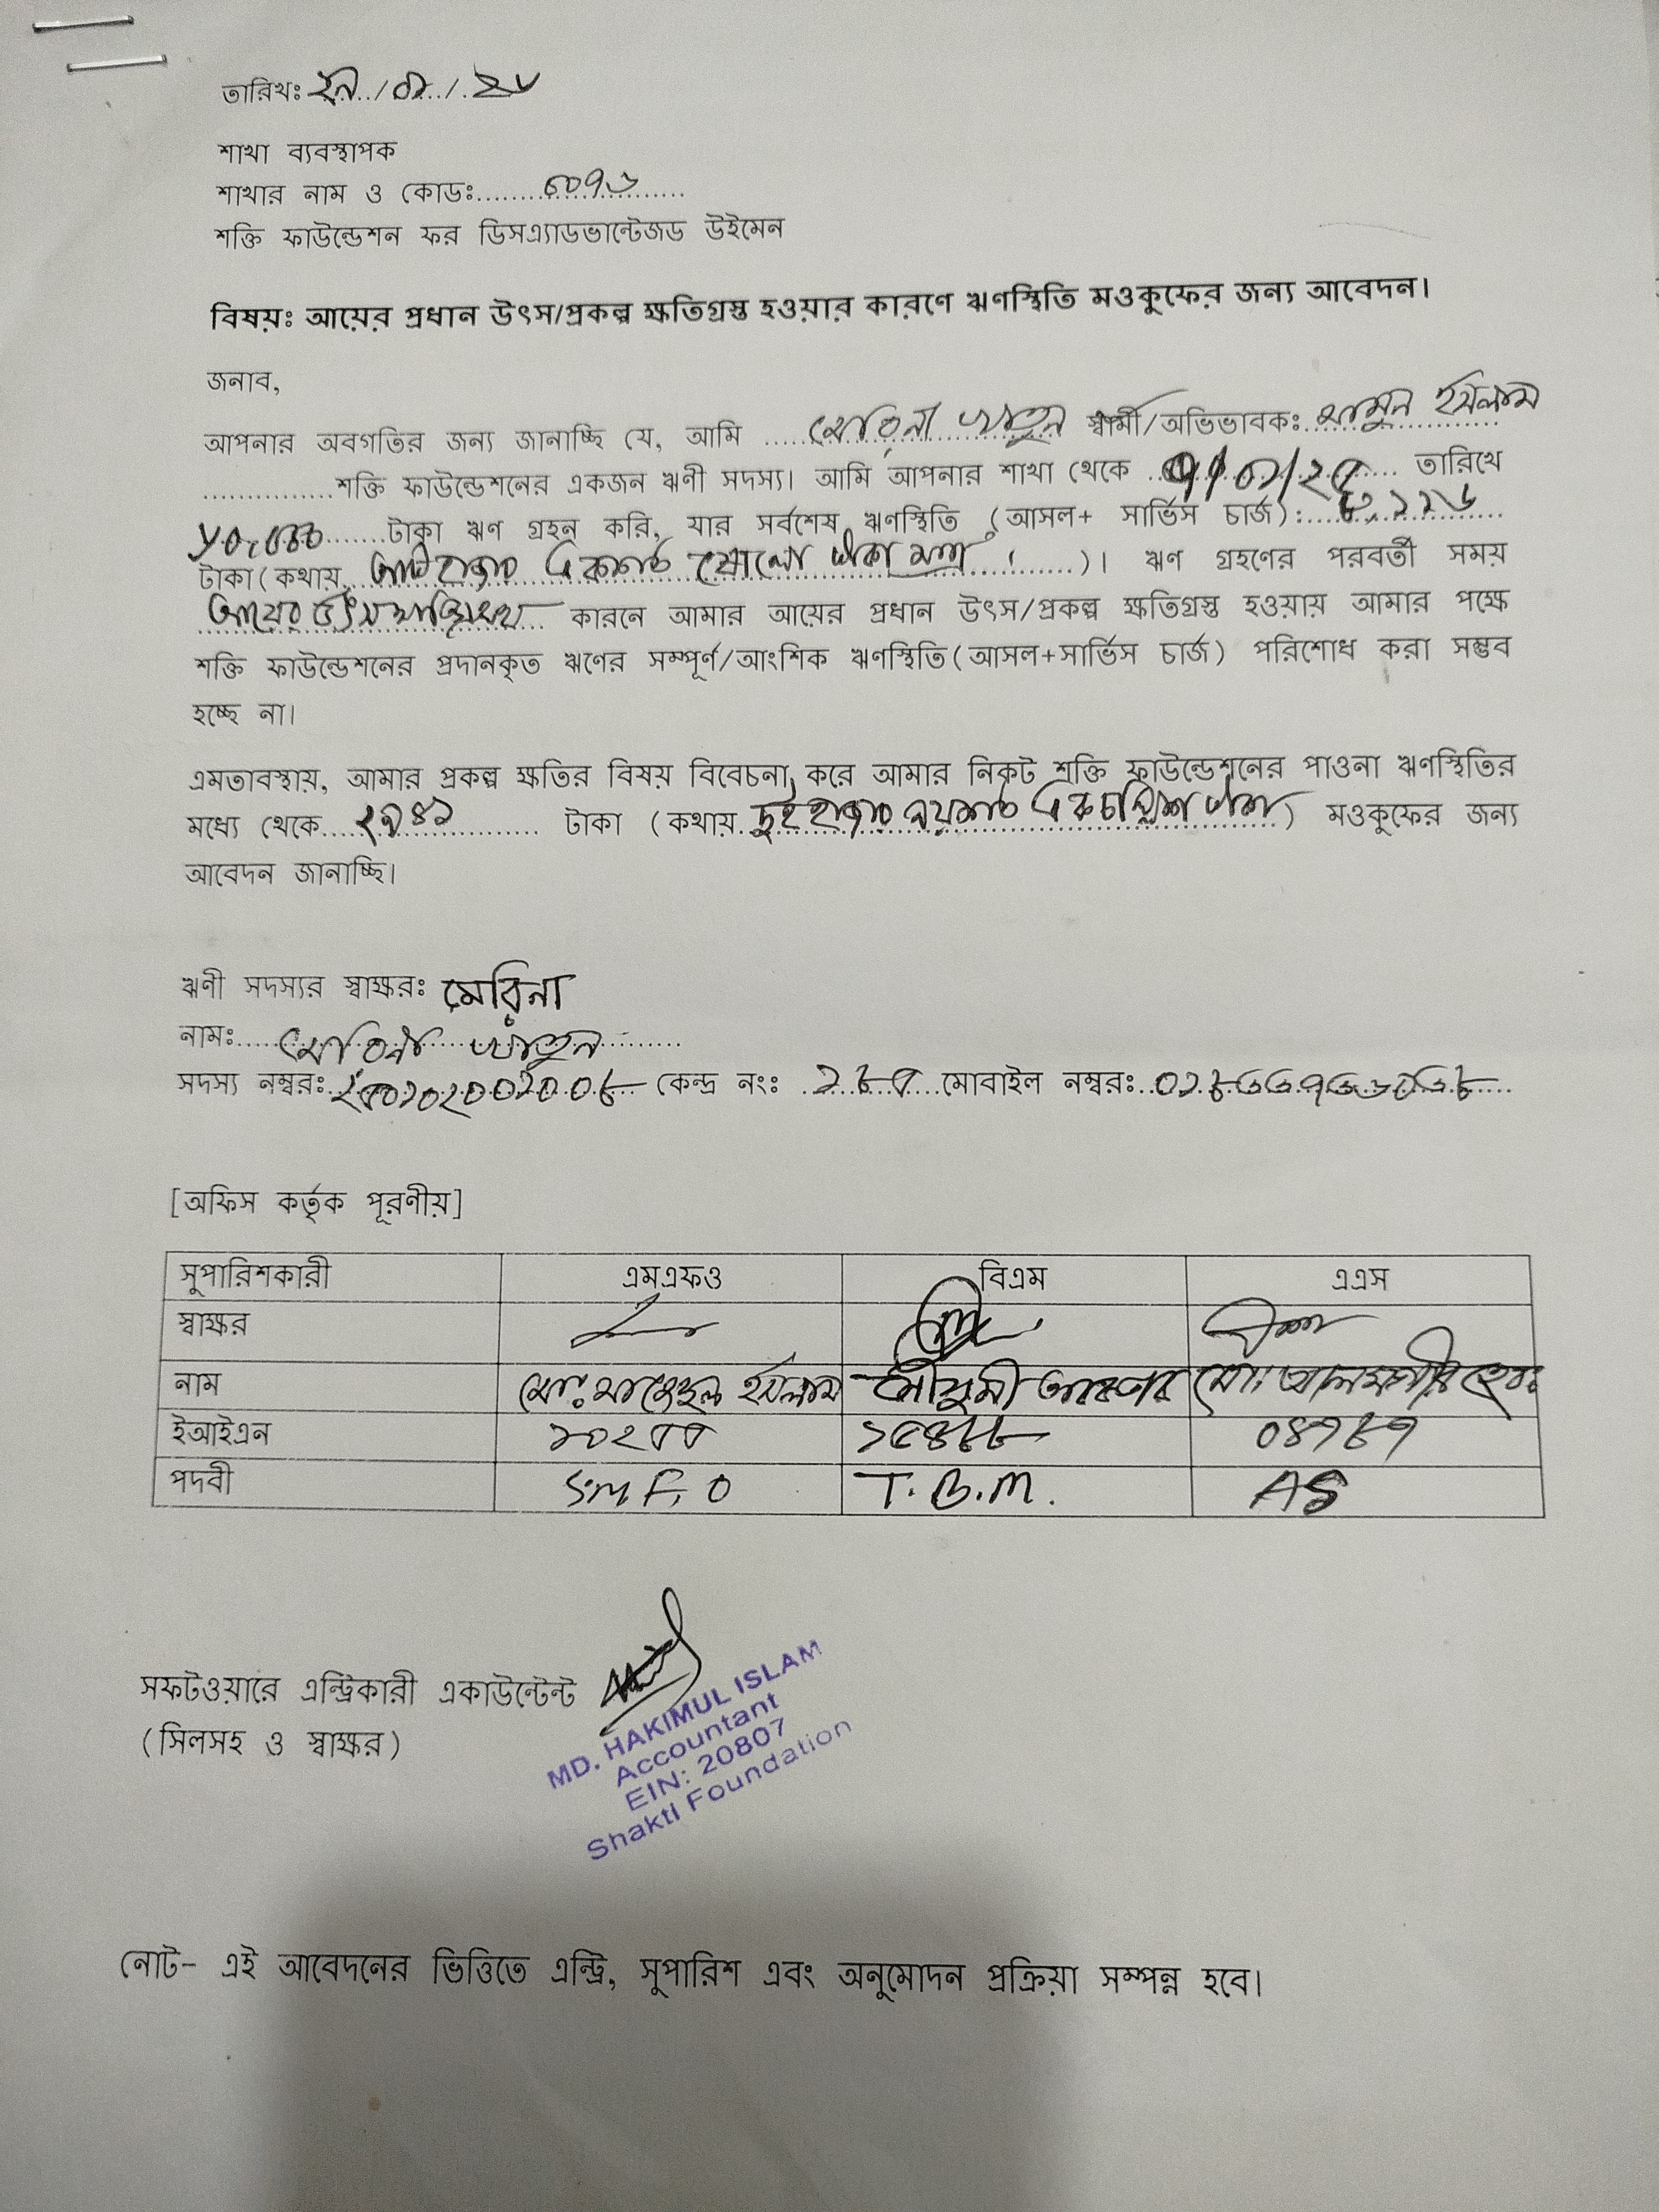 তারিখঃ
শাখা ব্যবস্থাপক
শাখার নাম ও কোডঃ
শক্তি ফাউন্ডেশন ফর ডিসএ্যাডভান্টেজড উইমেন
বিষয়ঃ আয়ের প্রধান উৎস/প্রকল্প ক্ষতিগ্রস্ত হওয়ার কারণে ঋণস্থিতি মওকুফের জন্য আবেদন।
জনাব,
আপনার অবগতির জন্য জানাচ্ছি যে, আমি মেরিনা খাতুন স্বামী/অভিভাবকঃ মামুন ইসলাম
শক্তি ফাউন্ডেশনের একজন ঋণী সদস্য। আমি আপনার শাখা থেকে তারিখে
টাকা ঋণ গ্রহন করি, যার সর্বশেষ ঋণস্থিতি (আসল+ সার্ভিস চার্জ): ৮,১১৬
টাকা(কথায় আট হাজার একশত ষোলো টাকা মাত্র।)। ঋণ গ্রহণের পরবর্তী সময়
আয়ের উৎস কারনে আমার আয়ের প্রধান উৎস/প্রকল্প ক্ষতিগ্রস্ত হওয়ায় আমার পক্ষে
শক্তি ফাউন্ডেশনের প্রদানকৃত ঋণের সম্পূর্ণ/আংশিক ঋণস্থিতি(আসল+সার্ভিস চার্জ) পরিশোধ করা সম্ভব
হচ্ছে না।
এমতাবস্থায়, আমার প্রকল্প ক্ষতির বিষয় বিবেচনা করে আমার নিকট শক্তি ফাউন্ডেশনের পাওনা ঋণস্থিতির
মধ্যে থেকে ২৯৪১ টাকা (কথায় দুই হাজার নয়শত একচল্লিশ টাকা) মওকুফের জন্য
আবেদন জানাচ্ছি।
ঋণী সদস্যর স্বাক্ষরঃ মেরিনা
নামঃ মেরিনা খাতুন
সদস্য নম্বরঃ কেন্দ্র নংঃ মোবাইল নম্বরঃ
[অফিস কর্তৃক পূরণীয়]
সুপারিশকারী এমএফও বিএম এএস
স্বাক্ষর
নাম মোঃ ইসলাম মৌসুমী আক্তার মোঃ আলমগীর
ইআইএন ১৫৪৮৮ ০৪৭৮৭
পদবী S.M.F.O T.B.M. AS
সফটওয়ারে এন্ট্রিকারী একাউন্টেন্ট
(সিলসহ ও স্বাক্ষর)
MD. HAKIMUL ISLAM
Accountant
EIN: 20807
Shakti Foundation
নোট- এই আবেদনের ভিত্তিতে এন্ট্রি, সুপারিশ এবং অনুমোদন প্রক্রিয়া সম্পন্ন হবে।